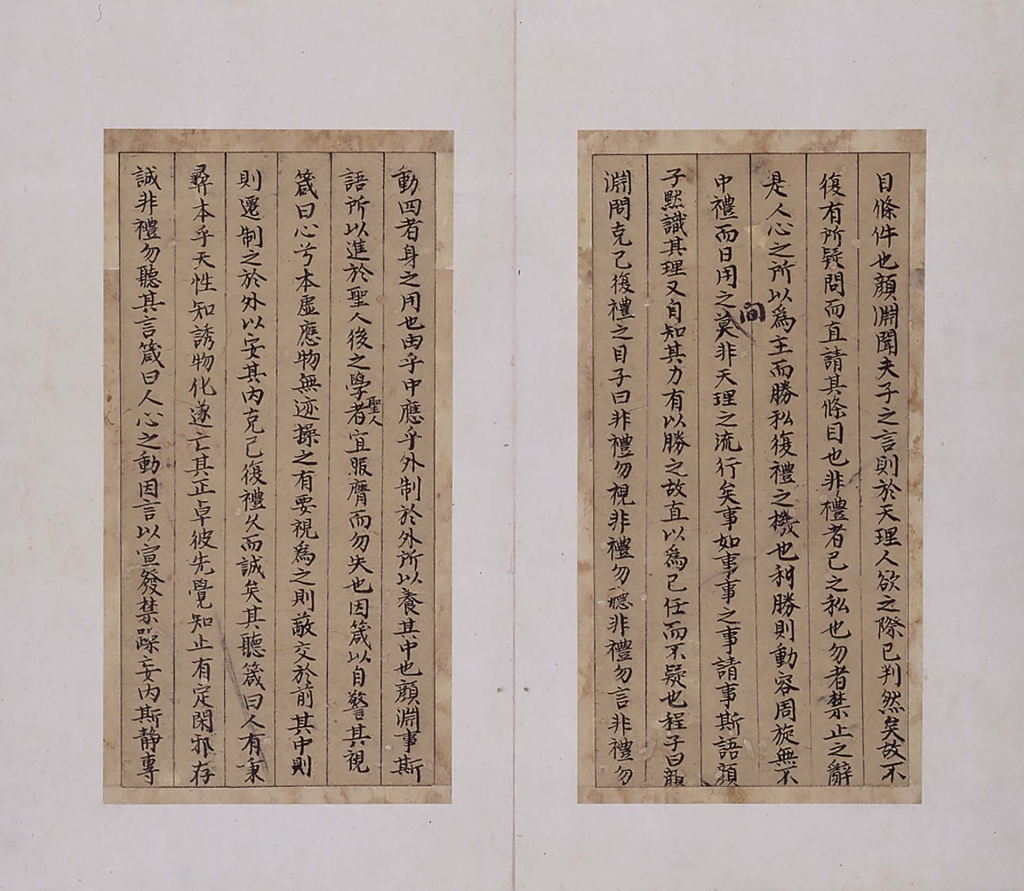 目條件也顏淵聞夫子之言則於天理人欲之際已判然矣故不
復有所疑問而直請其條目也非禮者己之私也勿者禁止之辭
是人心之所以為主而勝私復禮之機也私勝則動容周旋無不
中禮而日用之間莫非天理之流行矣事如事事之事請事斯語顏
子默識其理又自知其力有以勝之故直以為己任而不疑也程子曰顏
淵問克己復禮之目子曰非禮勿視非禮勿聽非禮勿言非禮勿
動四者身之用也由乎中應乎外制於外所以養其中也顏淵事斯
語所以進於聖人後之學聖人者宜服膺而勿失也因箴以自警其視
箴曰心兮本虛應物無迹操之有要視為之則蔽交於前其中則
則遷制之於外以安其內克己復禮久而誠矣其聽箴曰人有秉
彝本乎天性知誘物化遂亡其正卓彼先覺知止有定閑邪存
誠非禮勿聽其言箴曰人心之動因言以宣發禁躁妄內斯靜專